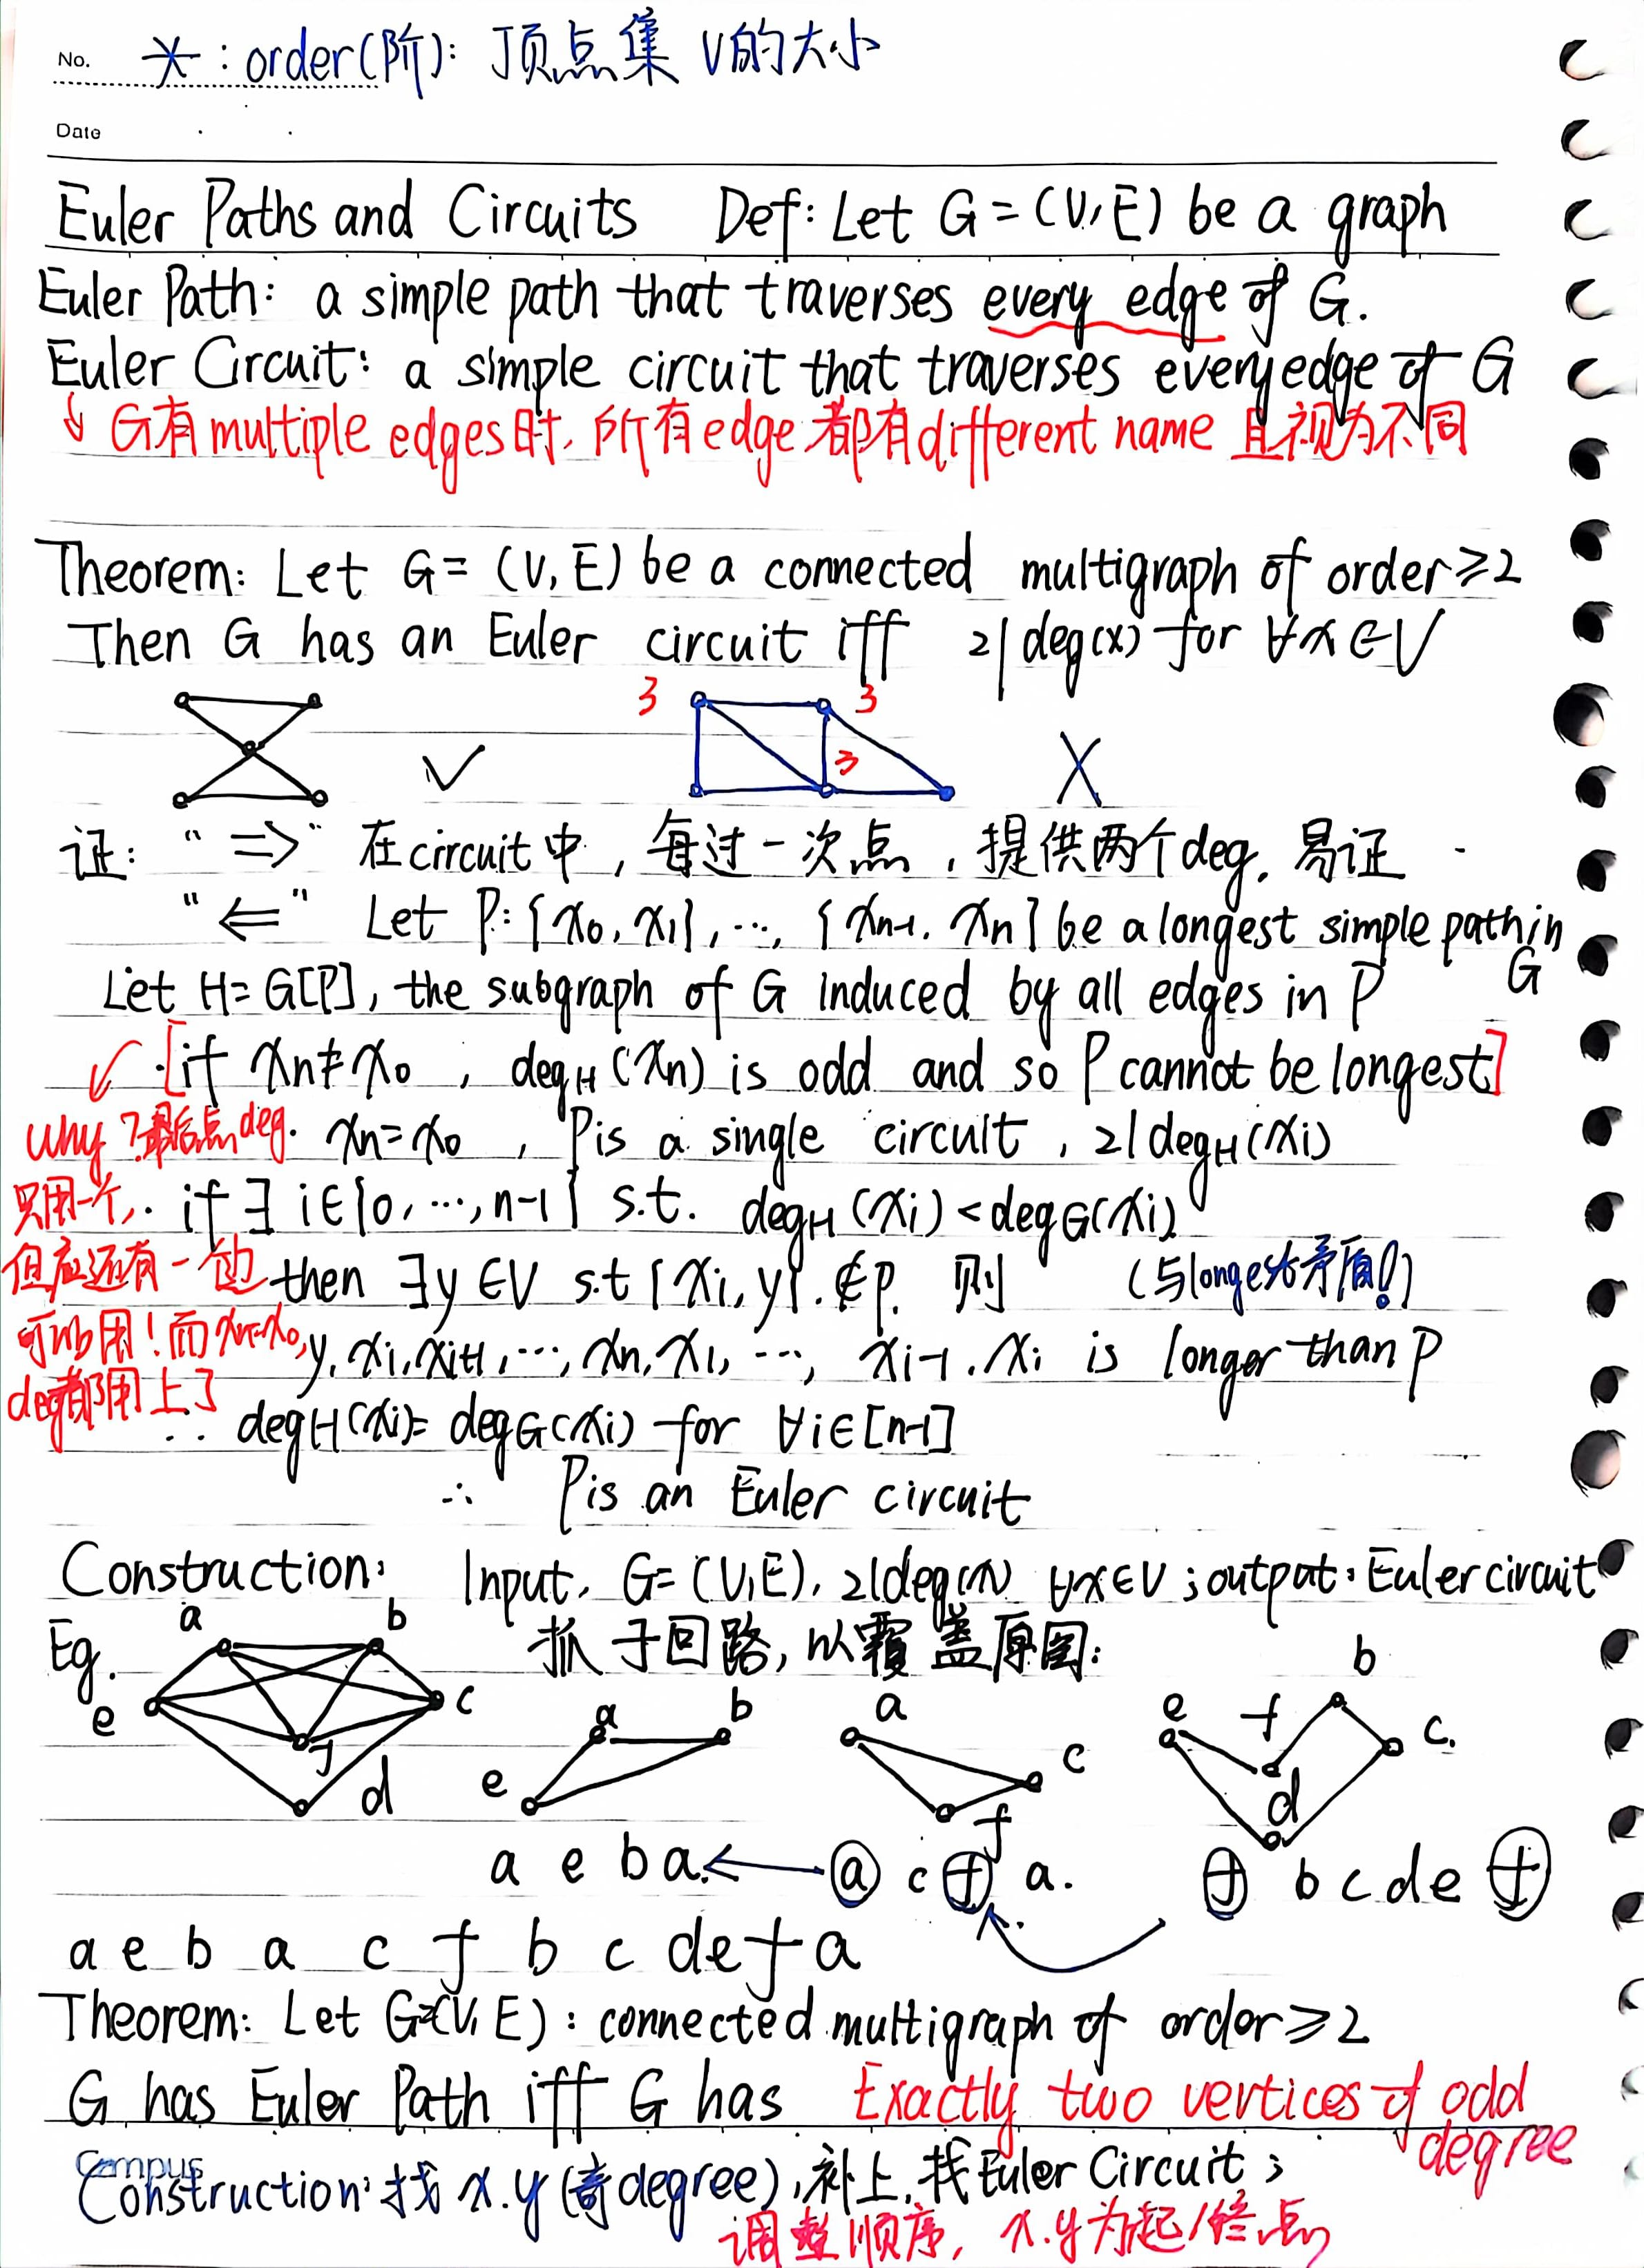 No. ※: order(阶): 顶点集 V的大小
Date
Euler Paths and Circuits Def: Let G = (V, E) be a graph
Euler Path: a simple path that traverses every edge of G.
Euler Circuit: a simple circuit that traverses every edge of G
↓ G有multiple edges时, 所有edge都有different name 且视为不同
Theorem: Let G = (V, E) be a connected multigraph of order ≥ 2
Then G has an Euler circuit iff 2|deg(x) for ∀x∈V
3 3
✓ 3 X
证: "⇒" 在circuit中, 每过一次点, 提供两个deg. 易证
"⇐" Let P: {x0, x1}, ..., {xn-1, xn} be a longest simple path in G
Let H = G[P], the subgraph of G induced by all edges in P
✓ [if xn ≠ x0, degH(xn) is odd and so P cannot be longest]
why? 最后点deg. xn = x0, P is a single circuit, 2|degH(xi)
只用一个, if ∃ i∈{0, ..., n-1} s.t. degH(xi) < degG(xi)
但应还有一边 then ∃y∈V s.t {xi, y} ∉ P. 则 (与longest矛盾!)
可以用! 而xn=x0, y, xi, xi+1, ..., xn, x1, ..., xi-1, xi is longer than P
deg都用上了 ∴ degH(xi) = degG(xi) for ∀i∈[n-1]
∴ P is an Euler circuit
Construction: Input. G = (V, E), 2|deg(x) ∀x∈V; output: Euler circuit
Eg. 抓子回路, 以覆盖原图:
a b
e c
f
d
a b
e
a
c
f
b
e f c.
d
a e b a. ← ⓐ c ⓕ a. ⓕ b c d e ⓕ
a e b a c f b c d e f a
Theorem: Let G=(V, E): connected multigraph of order ≥ 2
G has Euler Path iff G has Exactly two vertices of odd degree
Campus
Construction: 找 x.y (奇degree), 补上, 找Euler Circuit;
调整顺序, x.y为起/终点